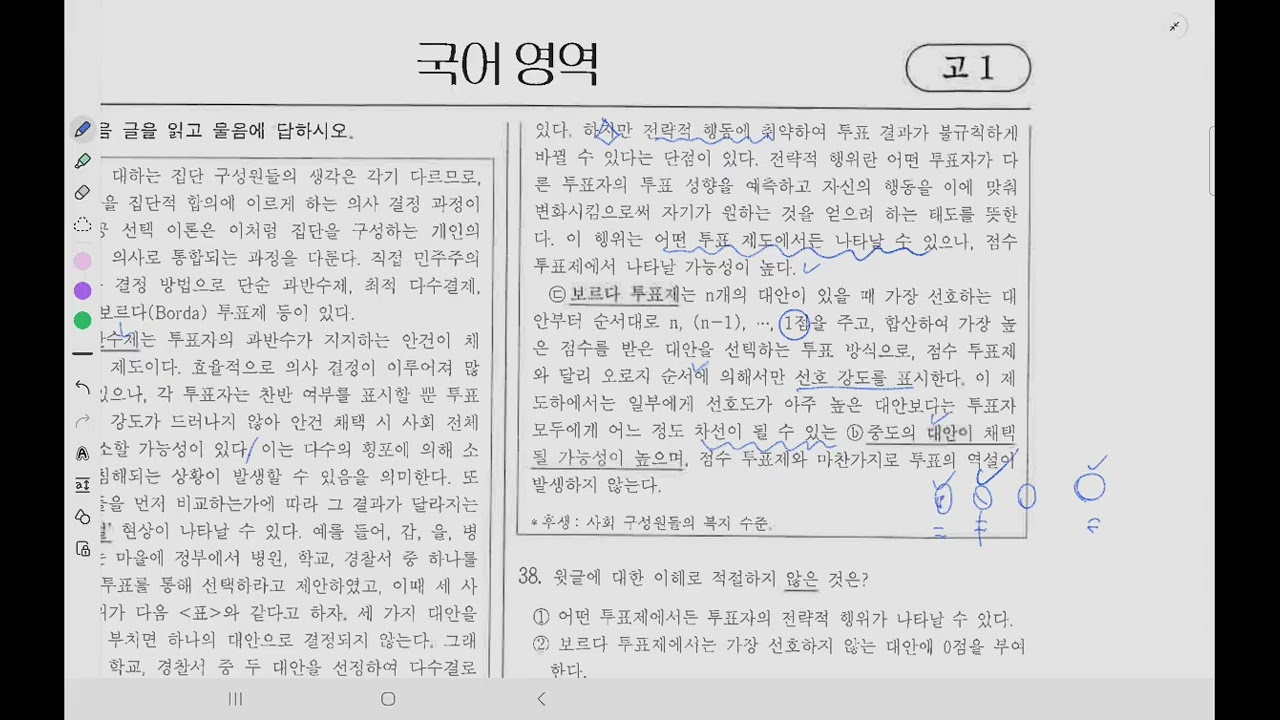 국어 영역
고 1
음 글을 읽고 물음에 답하시오.
대하는 집단 구성원들의 생각은 각기 다르므로,
을 집단적 합의에 이르게 하는 의사 결정 과정이
선택 이론은 이처럼 집단을 구성하는 개인의
의사로 통합되는 과정을 다룬다. 직접 민주주의
결정 방법으로 단순 과반수제, 최적 다수결제,
보르다(Borda) 투표제 등이 있다.
반수제는 투표자의 과반수가 지지하는 안건이 채
제도이다. 효율적으로 의사 결정이 이루어져 많
있으나, 각 투표자는 찬반 여부를 표시할 뿐 투표
강도가 드러나지 않아 안건 채택 시 사회 전체
소할 가능성이 있다. 이는 다수의 횡포에 의해 소
침해되는 상황이 발생할 수 있음을 의미한다. 또
들을 먼저 비교하는가에 따라 그 결과가 달라지는
현상이 나타날 수 있다. 예를 들어, 갑, 을, 병
는 마을에 정부에서 병원, 학교, 경찰서 중 하나를
투표를 통해 선택하라고 제안하였고, 이때 세 사
가 다음 <표>와 같다고 하자. 세 가지 대안을
부치면 하나의 대안으로 결정되지 않는다. 그래
학교, 경찰서 중 두 대안을 선정하여 다수결로
있다. 하지만 전략적 행동에 취약하여 투표 결과가 불규칙하게
바뀔 수 있다는 단점이 있다. 전략적 행위란 어떤 투표자가 다
른 투표자의 투표 성향을 예측하고 자신의 행동을 이에 맞춰
변화시킴으로써 자기가 원하는 것을 얻으려 하는 태도를 뜻한
다. 이 행위는 어떤 투표 제도에서든 나타날 수 있으나, 점수
투표제에서 나타날 가능성이 높다.
㉢ 보르다 투표제는 n개의 대안이 있을 때 가장 선호하는 대
안부터 순서대로 n, (n−1), …, 1점을 주고, 합산하여 가장 높
은 점수를 받은 대안을 선택하는 투표 방식으로, 점수 투표제
와 달리 오로지 순서에 의해서만 선호 강도를 표시한다. 이 제
도하에서는 일부에게 선호도가 아주 높은 대안보다는 투표자
모두에게 어느 정도 차선이 될 수 있는 ⓑ 중도의 대안이 채택
될 가능성이 높으며, 점수 투표제와 마찬가지로 투표의 역설이
발생하지 않는다.
* 후생 : 사회 구성원들의 복지 수준.
38. 윗글에 대한 이해로 적절하지 않은 것은?
① 어떤 투표제에서든 투표자의 전략적 행위가 나타날 수 있다.
② 보르다 투표제에서는 가장 선호하지 않는 대안에 0점을 부여
한다.